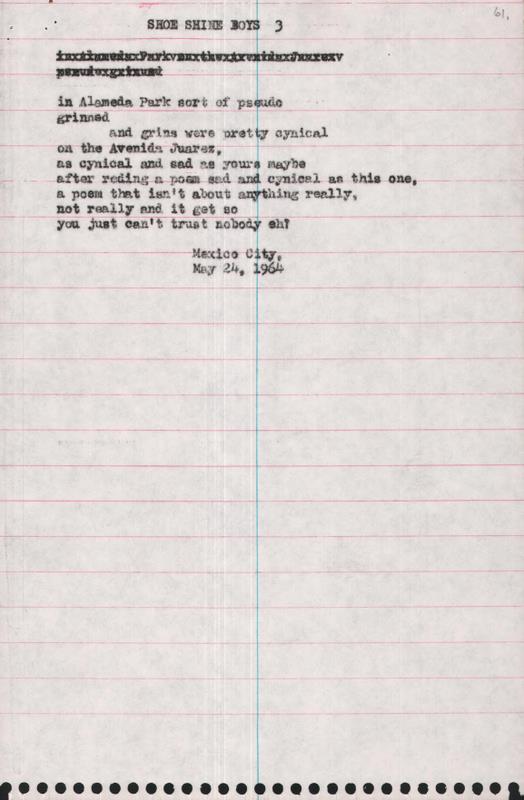 61.
SHOE SHINE BOYS 3
in Alameda Park sort of pseudo
grinned
and grins were pretty cynical
on the Avenida Juarez,
as cynical and sad as yours maybe
after reding a poem sad and cynical as this one,
a poem that isn't about anything really,
not really and it get so
you just can't trust nobody eh?
Mexico City,
May 24, 1964